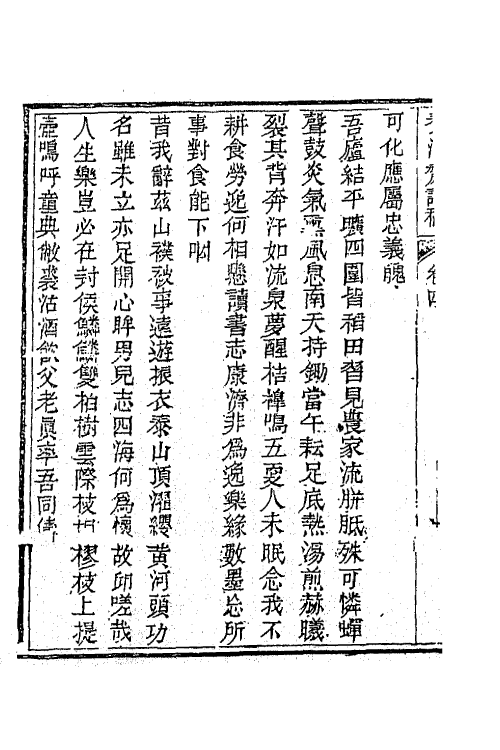 可化應屬忠義魄
吾廬結平曠四圍皆稻田習見農家流胼胝殊可憐蟬
聲鼓炎氣熏風息南天持鋤當午耘足底熱湯煎赫曦
裂其背奔汗如流泉夢醒桔槔鳴五更人未眠念我不
耕食勞逸何相懸讀書志康濟非為逸樂緣數墨忘所
事對食能下咽
昔我辭茲山襆被事遠遊振衣泰山頂濯纓黄河頭功
名雖未立亦足開心眸男兒志四海何為懷故邱嗟哉
人生樂豈必在封侯鱗鱗雙柏樹雲際枝相樛枝上提
壺鳴呼童典敝裘沽酒飲父老眞率吾同儔
卷四